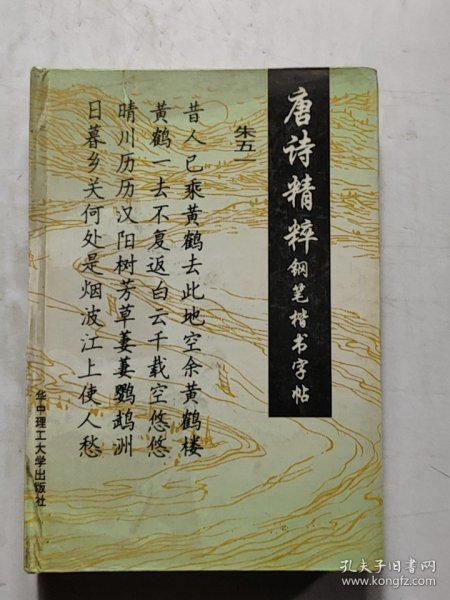 唐诗精粹钢笔楷书字帖
朱五一
昔人已乘黄鹤去此地空余黄鹤楼
黄鹤一去不复返白云千载空悠悠
晴川历历汉阳树芳草萋萋鹦鹉洲
日暮乡关何处是烟波江上使人愁
华中理工大学出版社
孔夫子旧书网
www.kongfz.com